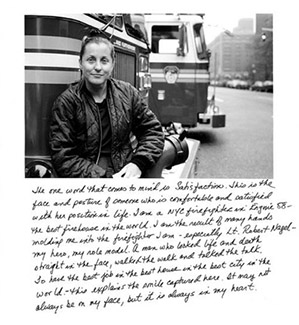 The one word that comes to mind is Satisfaction. This is the
face and posture of someone who is comfortable and satisfied
with her position in life. I am a NYC firefighter in Engine 58-
the best firehouse in the world. I am the result of many hands
molding me into the firefighter I am - especially Lt. Robert Nagel-
my hero, my role model. A man who looked life and death
straight in the face, walked the walk and talked the talk.
To have the best job in the best house in the best city in the
world - this explains the smile captured here. It may not
always be on my face, but it is always in my heart.